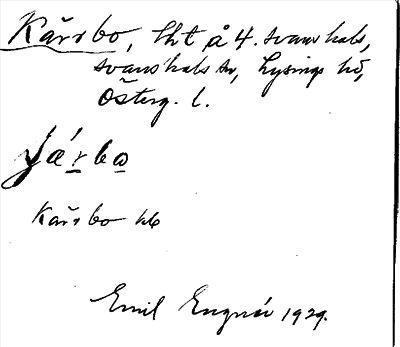 Kärrbo, lht å 4. Svanshals,
Svanshals sn, Lysings hd,
Österg. l.
Járbo
Kärrbo
Emil Engnér 1929.